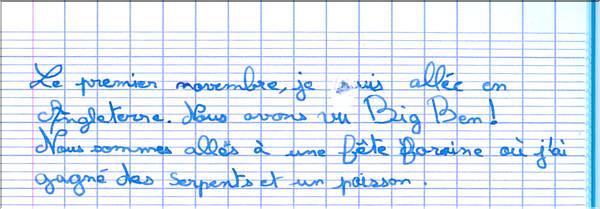 Le premier novembre, je suis allée en
Angleterre. Nous avons vu Big Ben!
Nous sommes allés à une fête foraine où j'ai
gagné des serpents et un poisson.